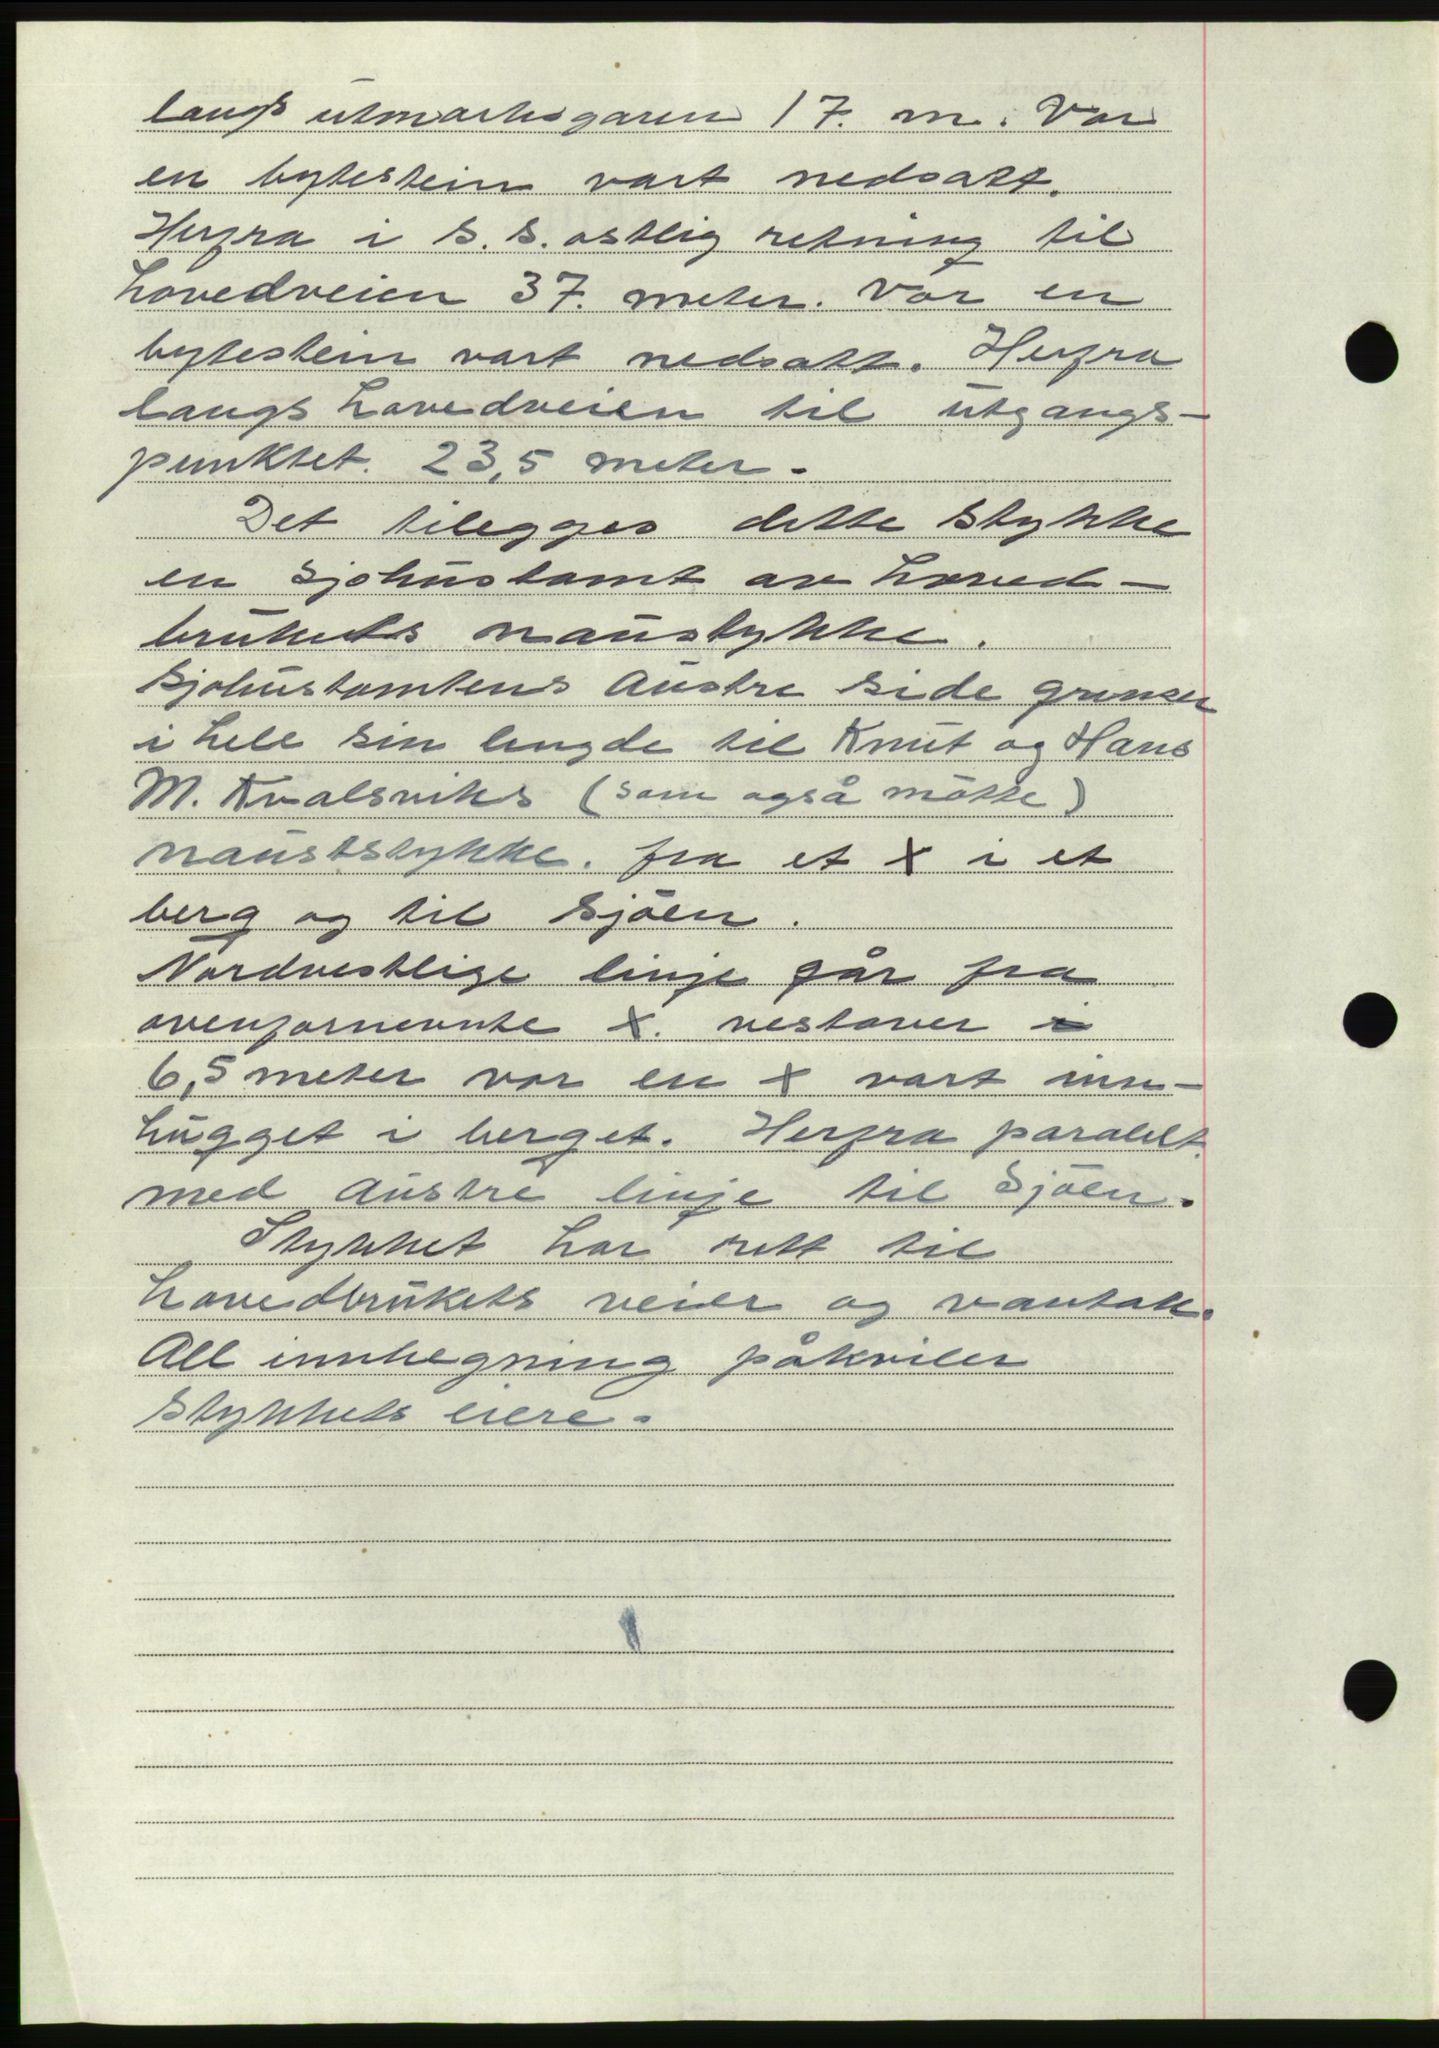 langs utmarksgaren 17. m. Vor
en bytestein vart nedsatt.
Herfra i S. S. ostlig retning til
hovedveien 37. meter. Vor en
bytestein vart nedsatt. Herfra
langs hovedveien til utgangs-
punktet. 23,5 meter.
Det tilegges dette stykke
en sjohustomt av hoved-
brukets naustykke.
Sjohustomtens Austre side grenser
i hele sin lengde til Knut og Hans
M. Kvalsviks (som også møtte)
nauststykke. fra et X i et
berg og til Sjøen.
Nordvestlige linje går fra
ovenfornevnte X. vestover
6,5 meter vor en X vart inn-
hugget i berget. Herfra paralelt
med Austre linje til Sjøen.
Stykket har rett til
hovedbrukets veier og vantak.
All innhegning påkviler
Stykkets eiere.